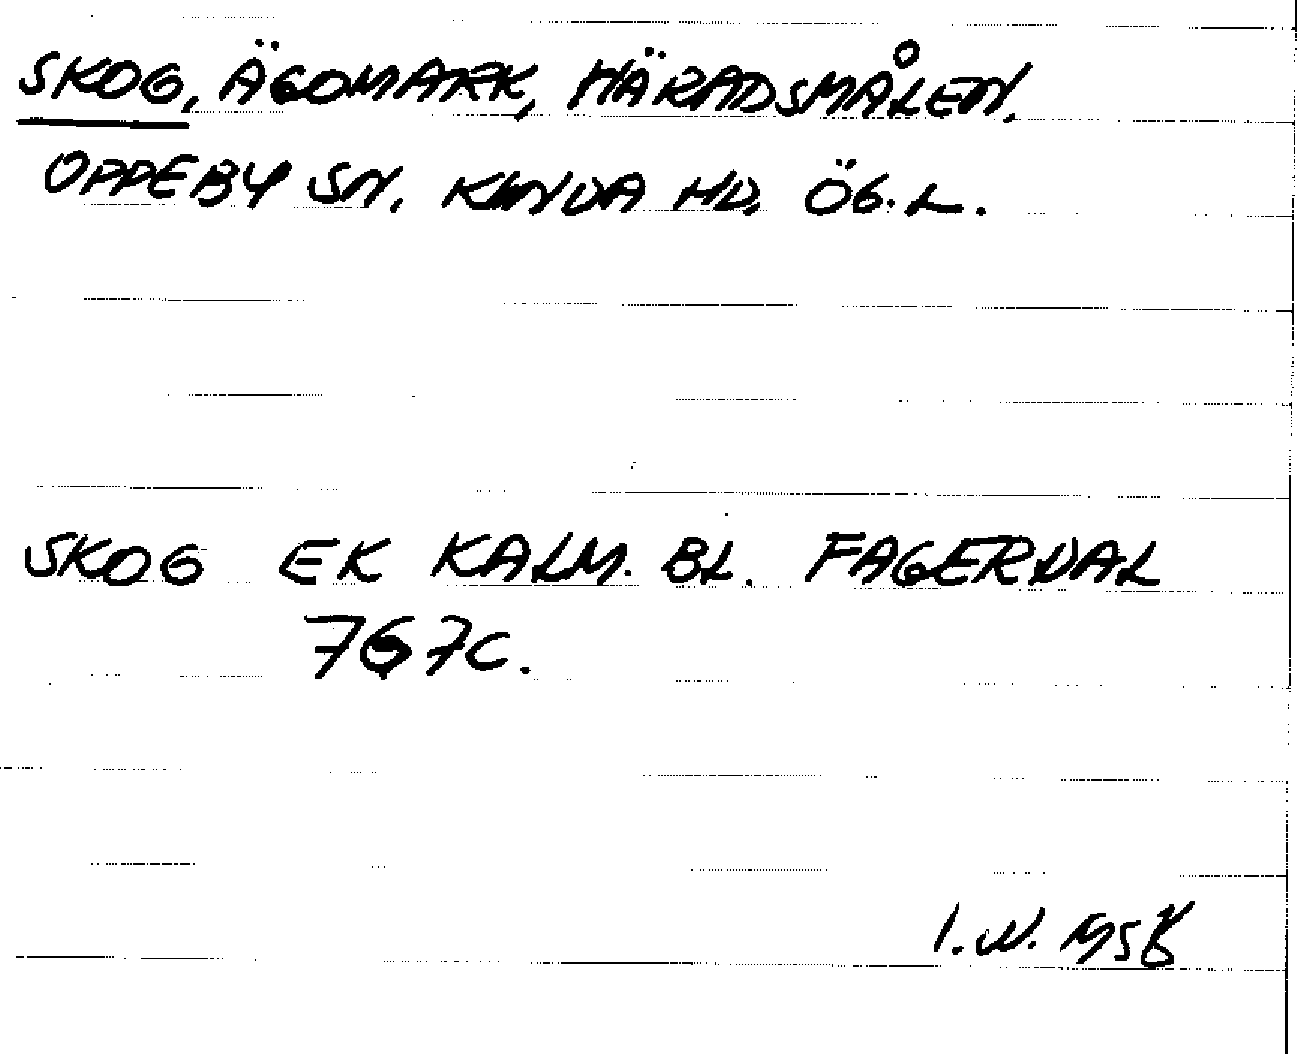 SKOG, ÄGOMARK, HÄRADSMÅLEN,
OPPEBY SN. KINDA HD, ÖG.L.
SKOG EK KALM. BL. FAGERDAL
767C.
I.N.